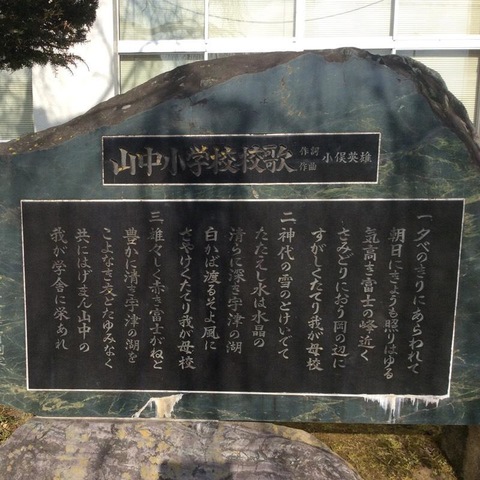 山中小学校校歌
作詞
作曲
小俣英雄
一夕べのきりにあらわれて
朝日にきょうも照りはゆる
気高き富士の峰近く
さみどりにおう岡の辺に
すがしくたてり我が母校
二神代の雪のとけいでて
たたえし水は水晶の
清らに深き宇津の湖
白かば渡るそよ風に
さやけくたてり我が母校
三雄々しく赤き富士がねと
豊かに清き宇津の湖を
こよなき友とたゆみなく
共にはげまん山中の
我が学舎に栄あれ